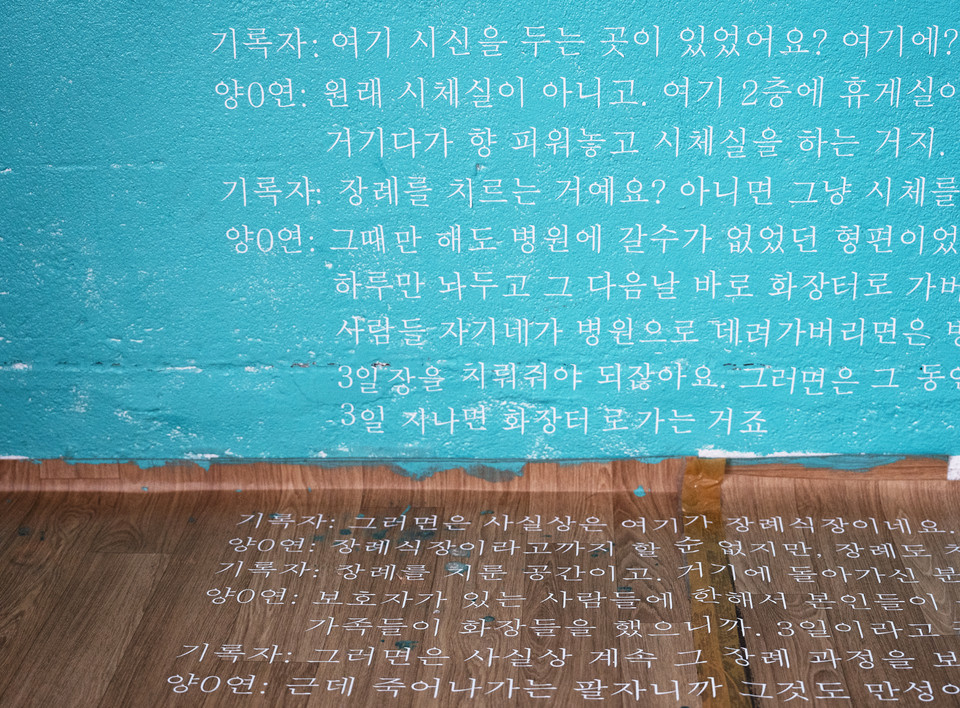 기록자: 여기 시신을 두는 곳이 있었어요? 여기에?
양0연: 원래 시체실이 아니고. 여기 2층에 휴게실이
거기다가 향 피워놓고 시체실을 하는 거지.
기록자: 장례를 치르는 거예요? 아니면 그냥 시체를
양0연: 그때만 해도 병원에 갈수가 없었던 형편이었
하루만 놔두고 그 다음날 바로 화장터로 가버
사람들 자기네가 병원으로 데려가버리면은
3일장을 치뤄줘야 되잖아요. 그러면은 그 동안
3일 지나면 화장터로 가는 거죠
기록자: 그러면은 사실상은 여기가 장례식장이네요.
양0연: 장례식장이라고까지 할 순 없지만, 장례도
기록자: 장례를 치룬 공간이고. 거기에 돌아가신 분
양0연: 보호자가 있는 사람들에 한해서 본인들이
가족들이 화장들을 했으니까. 3일이라고
기록자: 그러면은 사실상 계속 그 장례 과정을 보
양0연: 근데 죽어나가는 팔자니까 그것도 만성이